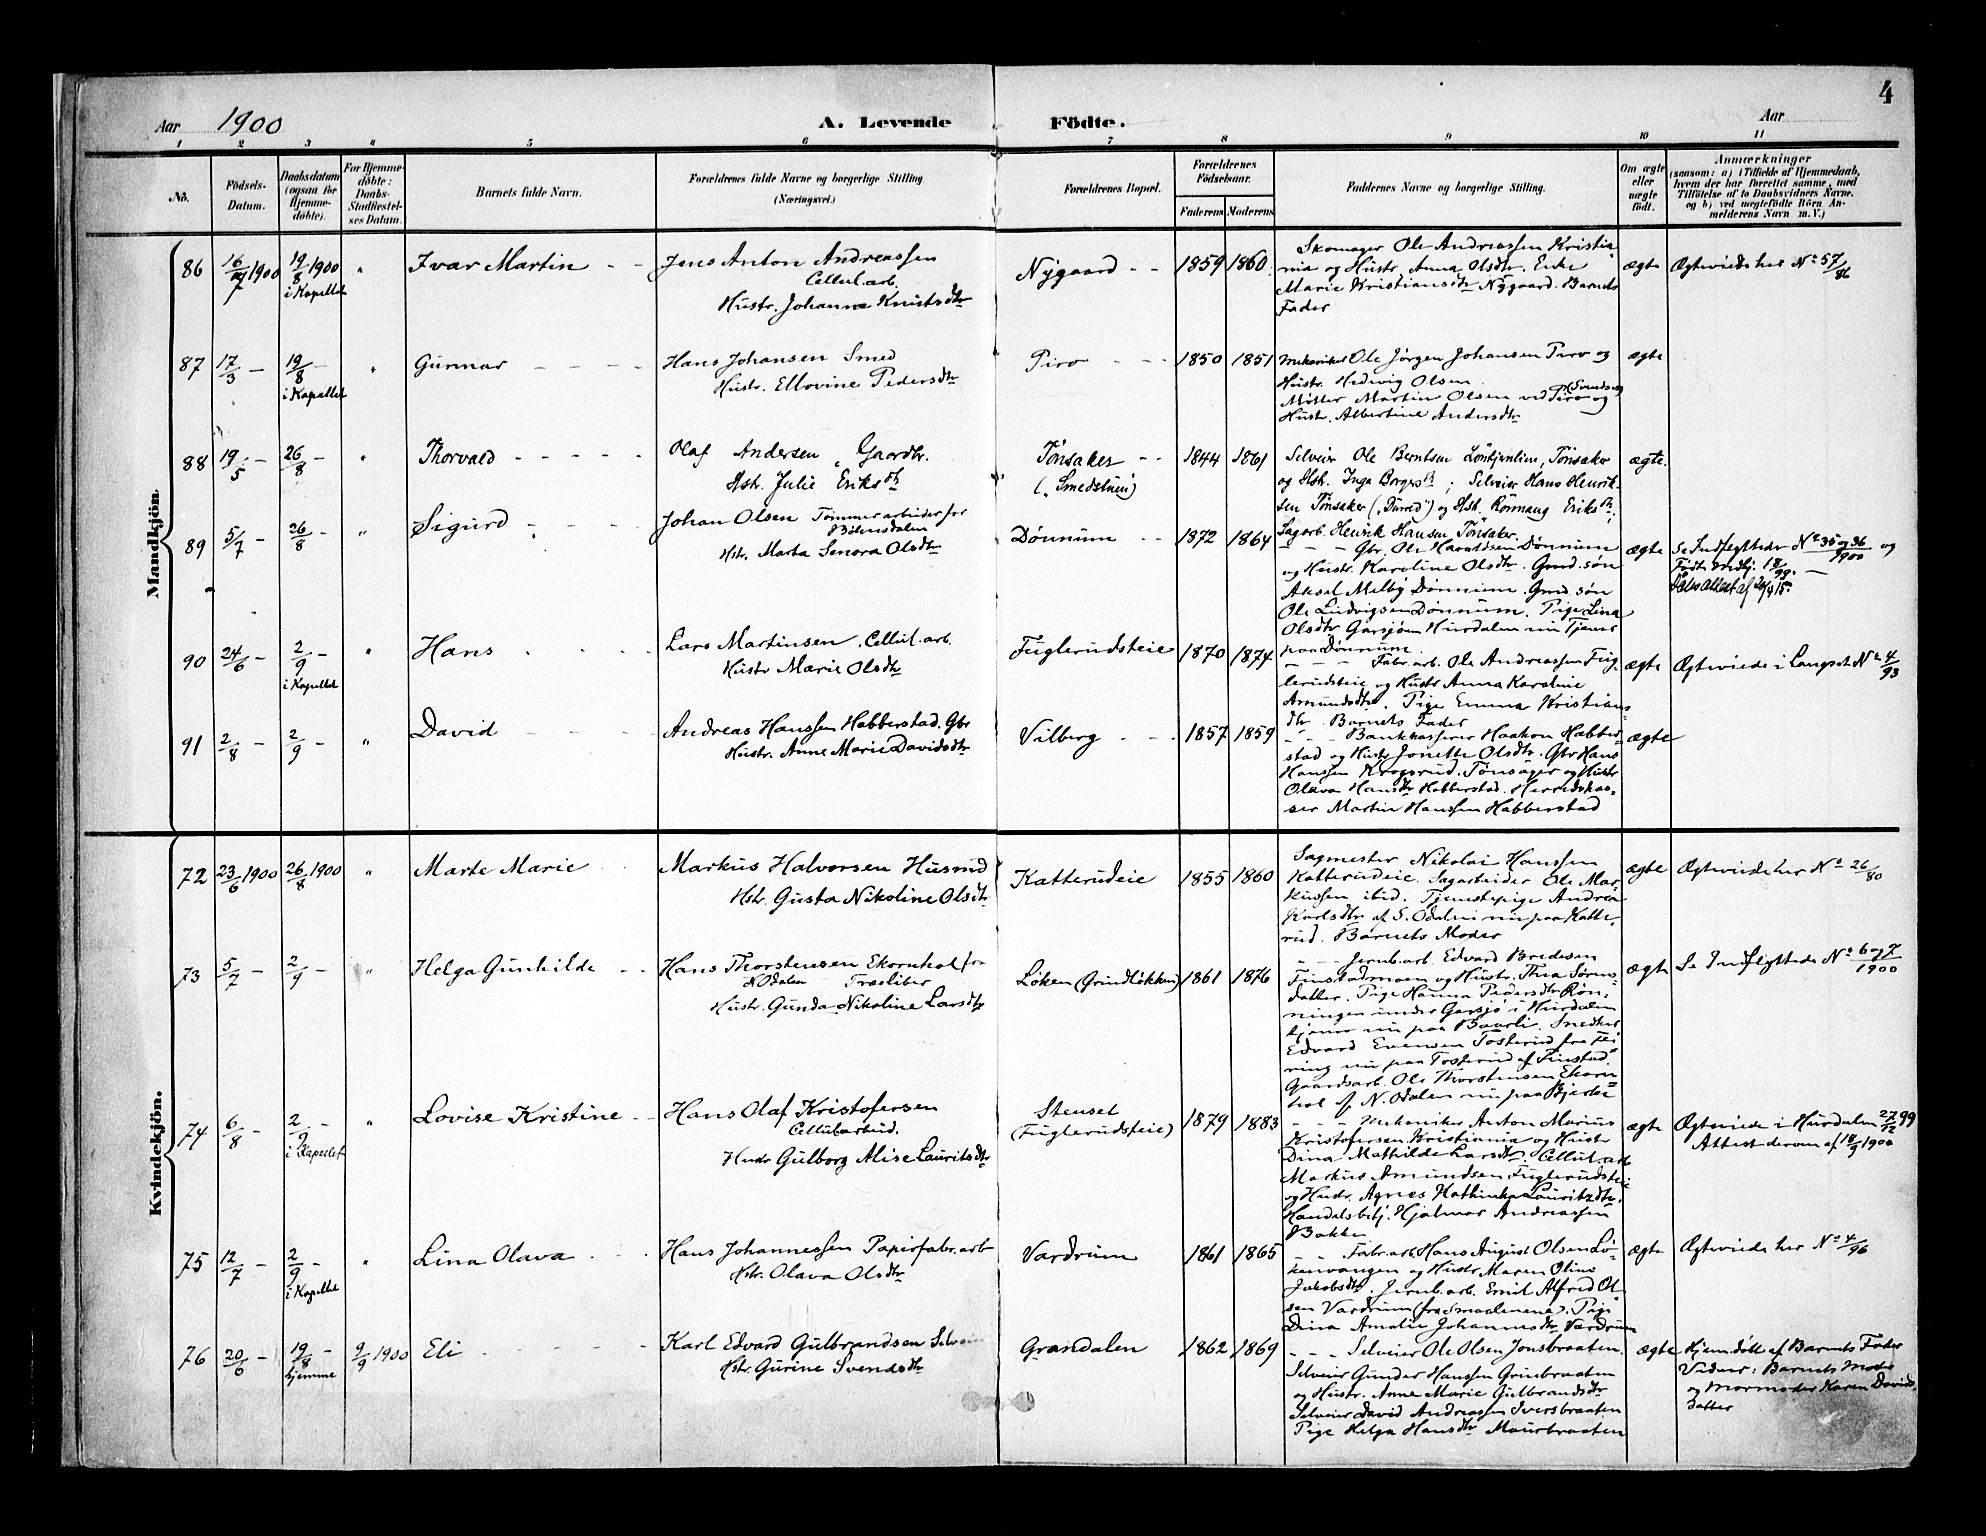 4
Aar 1900 A. Levende Födte. Aar
1 2 3 4 5 6 7 8 9 10 11
No.
Födsels-Datum.
Daabsdatum (ogsaa for Hjemme-döbte).
For Hjemme-döbte: Daabs-Stadfæstel-ses Datum.
Barnets fulde Navn.
Forældrenes fulde Navne og borgerlige Stilling
(Næringsvei.)
Forældrenes Bopæl.
Forældrenes Födselsaar.
Faderens Moderens
Faddernes Navne og borgerlige Stilling.
Om ægte eller uægte födt.
Anmærkninger
(saasom: a) i Tilfælde af Hjemmedaab,
hvem der har forrettet samme, med
Tilföielse af to Daabsvidners Navne,
og b) ved uægtefödte Börn An-
melderens Navn m. V.)
Mandkjön.
86 16/7 1900 19/8 1900 i Kapellet " Ivar Martin
Jens Anton Andreassen
Cellul.arb.
Hustr. Johanne Knutsdtr
Nygaard 1859 1860
Skomager Ole Andreassen Kristia
nia og Hustr. Anna Olsdtr. Enke
Marie Kristiansdtr Nygaard. Barnets
Fader
ægte Ægteviede her No 57/86
87 17/3 – 19/8 – i Kapellet " Gunnar
Hans Johansen Smed
Hustr. Ellovine Pedersdtr
Piro 1850 1851
Mekaniker Ole Jörgen Johansen Piro og
Hustr. Hedvig Olsen.
Möller Martin Olsen ved Piro og
Hustr. Albertine Andersdtr
ægte
88 19/5 – 26/8 – " Thorvald
Olaf Andersen, Gaardbr.
Hstr. Julie Eriksdtr
Tönsaker
("Smedstuen")
1844 1861
Selveier Ole Berntsen, Tönsaker
og Hstr. Inga Borgersdtr; Selveier Hans Henrik-
sen Tönsaker og Hstr. Rönnaug Eriksdtr;
Sagarb. Henrik Hansen Tönsaker.
ægte.
89 5/7 – 26/8 – " Sigurd
Johan Olsen Tömmerarbeider fra
Hstr. Marta Senora Olsdtr
Dönnum 1872 1864
– – – Gbr. Ole Haraldsen Dönnum
og Hustr. Karoline Olsdtr. Gmd. sön
Aksel Melby Dönnum. Gmd. sön
Ole Ludvigsen Dönnum. Pige Lina
Olsdtr Garsjöen Hurdalen nu Tjener
paa Dönnum.
ægte Se Indflyttede No 35 og 36/1900 og
90 24/6 – 2/9 – i Kapellet " Hans
Lars Martinsen, Cellul.arb.
Hustr Marie Olsdtr
Fuglerudsteie 1870 1874
– – – Fabr.arb. Ole Andreassen Fug-
lerudsteie og Hustr Anna Karoline
Amundsdtr. Pige Emma Kristians-
dtr. Barnets Fader
ægte Ægteviede i Langset No 4/93
91 2/8 – 2/9 – " David
Andreas Hanssen Habberstad. Gbr
Hustr. Anne Marie Davidsdtr
Vilberg 1857 1859
– – – Bankkasserer Haakon Habber-
stad og Hustr Jonette Olsdtr. Gbr Hans
Hanssen Krogsrud. Tönsager og Hustr
Olava Hansdtr Habberstad. Herredskas-
ser Martin Hanssen Habberstad
ægte
Kvindekjön.
72 23/6 1900 26/8 1900 " Marte Marie
Markus Halvorsen Husmd
Hstr. Gusta Nikoline Olsdtr
Katterudeie 1855 1860
Sagmester Nikolai Hanssen
Katterudeie. Sagarbeider Ole Mar-
kussen ibid. Tjenestepige Andrea
Karlsdtr af S. Odalen nu paa Katte-
rud. Barnets Moder
ægte Ægteviede her No 26/80
73 5/7 – 2/9 – " Helga Gunhilde
Hans Thorstensen Ekornhol fra
N. Odalen Træsliber
Hustr. Gunda Nikoline Larsdtr
Löken (Grindlökken) 1861 1876
– – – Jernb.arb. Edvard Bredesen
Finstadmoen og Hustr. Thea Sörens-
datter. Pige Hanna Pedersdtr Rön-
ningen under Garsjö i Hurdalen
tjener nu paa Baarli. Snedker
Edvard Evensen Tosterud fra Fei-
ring nu paa Tosterud af Finstad.
Gaardsarb. Ole Thorstensen Ekorn
hol af N. Odalen nu paa Bjerke
ægte Se Indflyttede No 6 og 7/1900
74 6/8 – 2/9 – i Kapellet " Lovise Kristine
Hans Olaf Kristofersen
Cellul.arbeid.
Hustr Gulborg Alise Lauritsdtr
Stenset
(Fuglerudsteie)
1879 1883
– – – Mekaniker Anton Marius
Kristofersen Kristiania og Hustr
Dina Mathilde Larsdtr. Cellul.arb
Markus Amundsen Fuglerudsteie
og Hustr. Agnes Kathinka Lauritzdtr.
Handelsbetj. Hjalmar Andreassen
Bakken
ægte Ægteviede i Hurdalen 27/12 99
Attest derom af 18/9 1900
75 12/7 – 2/9 – i Kapellet " Lina Olava
Hans Johannessen Papirfabr.arb
Hstr. Olava Olsdtr
Vardrum 1861 1865
– – Fabr.arb Hans August Olsen Lö-
kenvangen og Hustr Maren Oline
Jakobsdtr. Jernb.arb. Emil Alfred Ol-
sen Vardrum (fra Smaalenene. Pige
Dina Amalie Johannesdtr Vardrum
ægte Ægteviede her No 4/96
76 20/6 – 19/8 – hjemme 9/9 1900 Eli
Karl Edvard Gulbrandsen Selveier
Hstr. Gurine Svendsdtr
Grandalen 1862 1869
– – – Selveier Ole Olsen Jonsbraaten.
Selveier Gunder Hanssen Grinbraaten
og Hustr. Anne Marie Gulbrandsdtr
Selveier David Andreassen Iversbraaten
Pige Helga Hansdtr Maurbraaten
ægte Hjemdöbt af Barnets Fader
Vidner: Barnets Moder
og Mormoder Karen Davids-
datter